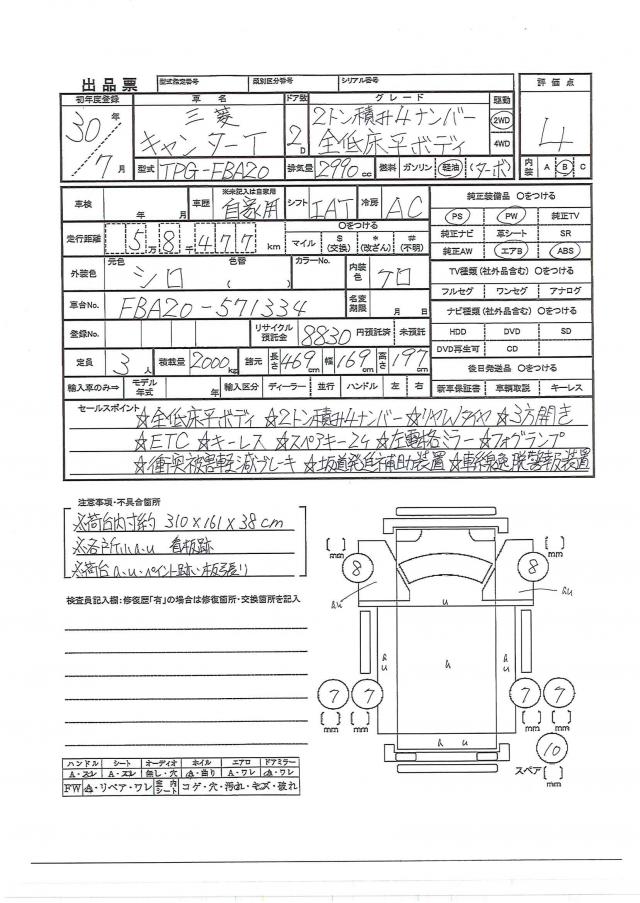 出品票 型式指定番号 類別区分番号 シリアル番号
初年度登録 車名 ドア数 グレード 駆動 評価点
30年 三菱 2D 2トン積み4ナンバー 2WD 4
7月 キャンターT 全低床平ボディ 4WD
型式 TPG-FBA20 排気量 2990cc 燃料 ガソリン 軽油 (ターボ) 内装 A B C
車検 年 月 車歴 ※未記入は自家用 自家用 シフト IAT 冷房 AC 純正装備品 ○をつける
PS PW 純正TV
走行距離 5万8千477km ○をつける マイル $(交換) *(改ざん) #(不明) 純正ナビ 革シート SR
純正AW エアB ABS
外装色 元色 シロ 色替 ( ) カラーNo. 内装色 クロ TV種類(社外品含む) ○をつける
フルセグ ワンセグ アナログ
車台No. FBA20-571334 名変期限 月 日 ナビ種類(社外品含む) ○をつける
登録No. リサイクル預託金 8830 円預託済 未預託 HDD DVD SD
DVD再生可 CD
定員 3人 積載量 2000kg 諸元 長さ 469cm 幅 169cm 高さ 197cm 後日発送品 ○をつける
輸入車のみ⇒ モデル年式 輸入区分 ディーラー 並行 ハンドル 左 右 新車保証書 車輌取説 キーレス
セールスポイント ☆全低床平ボディ ☆2トン積み4ナンバー ☆リヤWタイヤ ☆3方開き
☆ETC ☆キーレス ☆スペアキー2ケ ☆左電格ミラー ☆フォグランプ
☆衝突被害軽減ブレーキ ☆坂道発進補助装置 ☆車線逸脱警報装置
注意事項・不具合箇所
※荷台内寸約 310×161×38cm
※各所小A・U 看板跡
※荷台A・U・ペイント跡い板張り
検査員記入欄:修復歴「有」の場合は修復箇所・交換箇所を記入
[ ] mm 8 8 [ ] mm
AU U AU
A U A A U
7 7 7 7
[ ] mm [ ] mm [ ] mm [ ] mm
A U
10
スペア [ ] mm
ハンドル シート オーディオ ホイル エアロ ドアミラー
A・スレ A・スレ 無し・穴 A・曲り A・ワレ A・ワレ
FW A・リペア・ワレ 室内シート コゲ・穴・汚れ・キズ・破れ